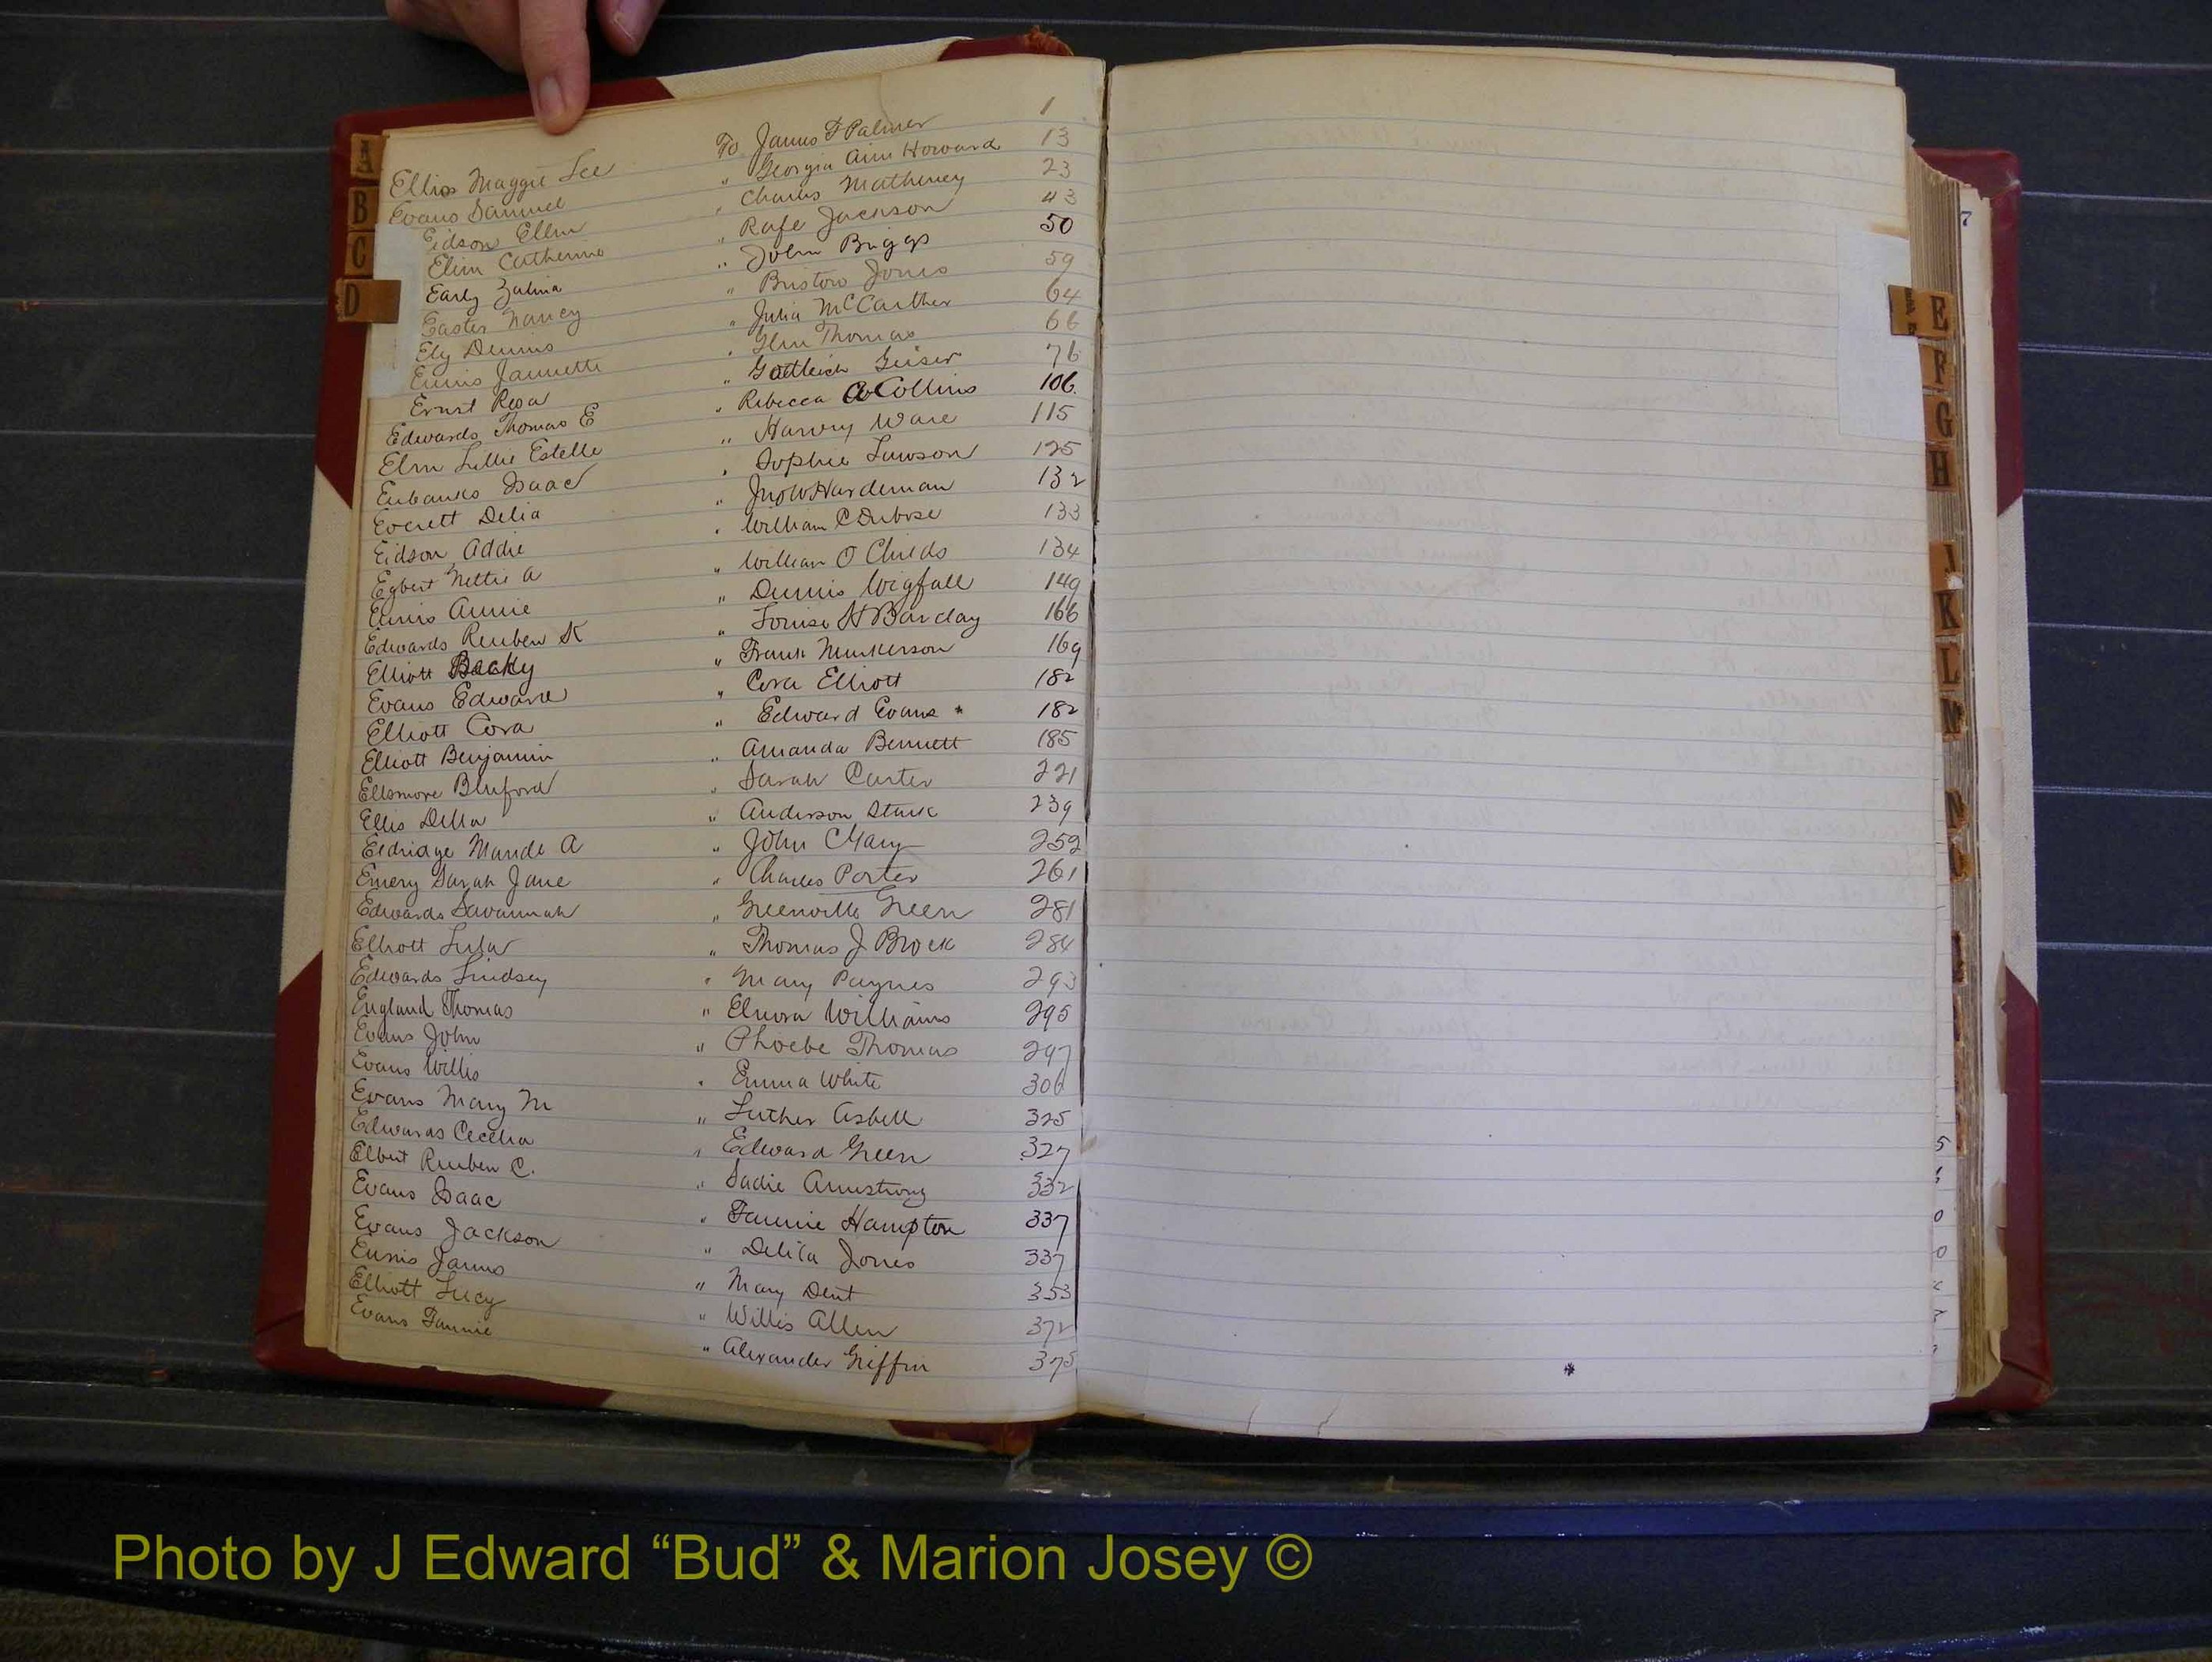 A
B
C
D
Ellis Maggie Lee To James F Palmer 1
Evans Samuel " Georgia Ann Howard 13
Eidson Ellen " Charles Matheney 23
Elim Catherine " Rafe Jackson 43
Early Zulina " John Briggs 50
Easter Nancy " Bristow Jones 59
Ely Dennis " Julia McCarther 64
Ennis Jannette " Glen Thomas 66
Ernst Rosa " Geiser 76
Edwards Thomas E " Rebecca A Collins 106
Elm Lillie Estelle " Harvey Ware 115
Eubanks Isaac " Sophie Lawson 125
Everett Delia " Jno W Hardeman 132
Eidson Addie " William C Dubose 133
Egbert Nettie A " William O Childs 134
Ennis Annie " Dennis Wigfall 149
Edwards Reuben K " Louise H Barclay 166
Elliott Becky " Frank Munkerson 169
Evans Edward " Cora Elliott 182
Elliott Cora " Edward Evans 182
Elliott Benjamin " Amanda Bennett 185
Ellsmore Bluford " Sarah Carter 221
Ellis Della " Anderson Stark 239
Eldridge Maude A " John C 252
Emery Sarah Jane " Charles Porter 261
Edwards Savannah " Greenville Green 281
Elliott Lula " Thomas J Brock 284
Edwards Lindsey " Mary Paynes 293
England Thomas " Elnora Williams 295
Evans John " Phoebe Thomas 297
Evans Willis " Emma White 306
Evans Mary M " Luther Asbell 325
Edwards Cecelia " Edward Green 327
Elbert Reuben C. " Sadie Armstrong 332
Evans Isaac " Fannie Hampton 337
Evans Jackson " Delila Jones 337
Ennis James " Mary Dent 353
Elliott Lucy " Willis Allen 372
Evans Fannie " Alexander Griffin 375
7
E
F
G
H
J
K
L
Photo by J Edward “Bud” & Marion Josey ©